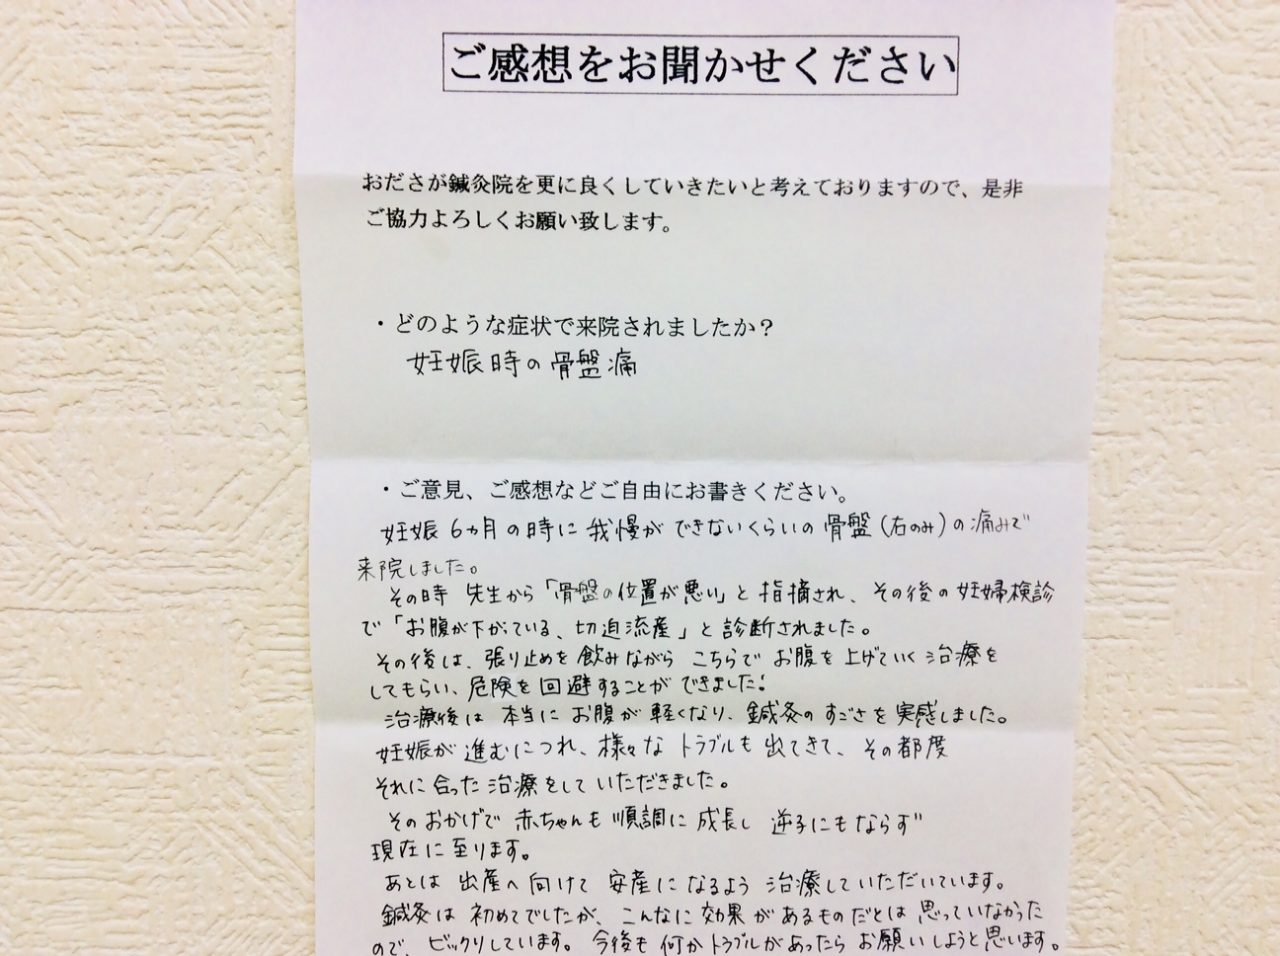 ご感想をお聞かせください
おださが鍼灸院を更に良くしていきたいと考えておりますので、是非
ご協力よろしくお願い致します。
・どのような症状で来院されましたか?
妊娠時の骨盤痛
・ご意見、ご感想などご自由にお書きください。
妊娠6ヵ月の時に我慢ができないくらいの骨盤(右のみ)の痛みで
来院しました。
その時 先生から「骨盤の位置が悪い」と指摘され、その後の妊婦検診
で「お腹が下がている、切迫流産」と診断されました。
その後は、張り止めを飲みながら こちらで お腹を上げていく治療を
してもらい、危険を回避することができました!
治療後は 本当に お腹が軽くなり、鍼灸のすごさを実感しました。
妊娠が進むにつれ、様々なトラブルも出てきて、その都度
それに合った治療をしていただきました。
そのおかげで 赤ちゃんも順調に成長し 逆子にもならず
現在に至ります。
あとは 出産へ向けて 安産になるよう 治療していただいています。
鍼灸は初めてでしたが、こんなに効果があるものだとは思っていなかった
ので、ビックリしています。今後も何かトラブルがあったらお願いしようと思います。